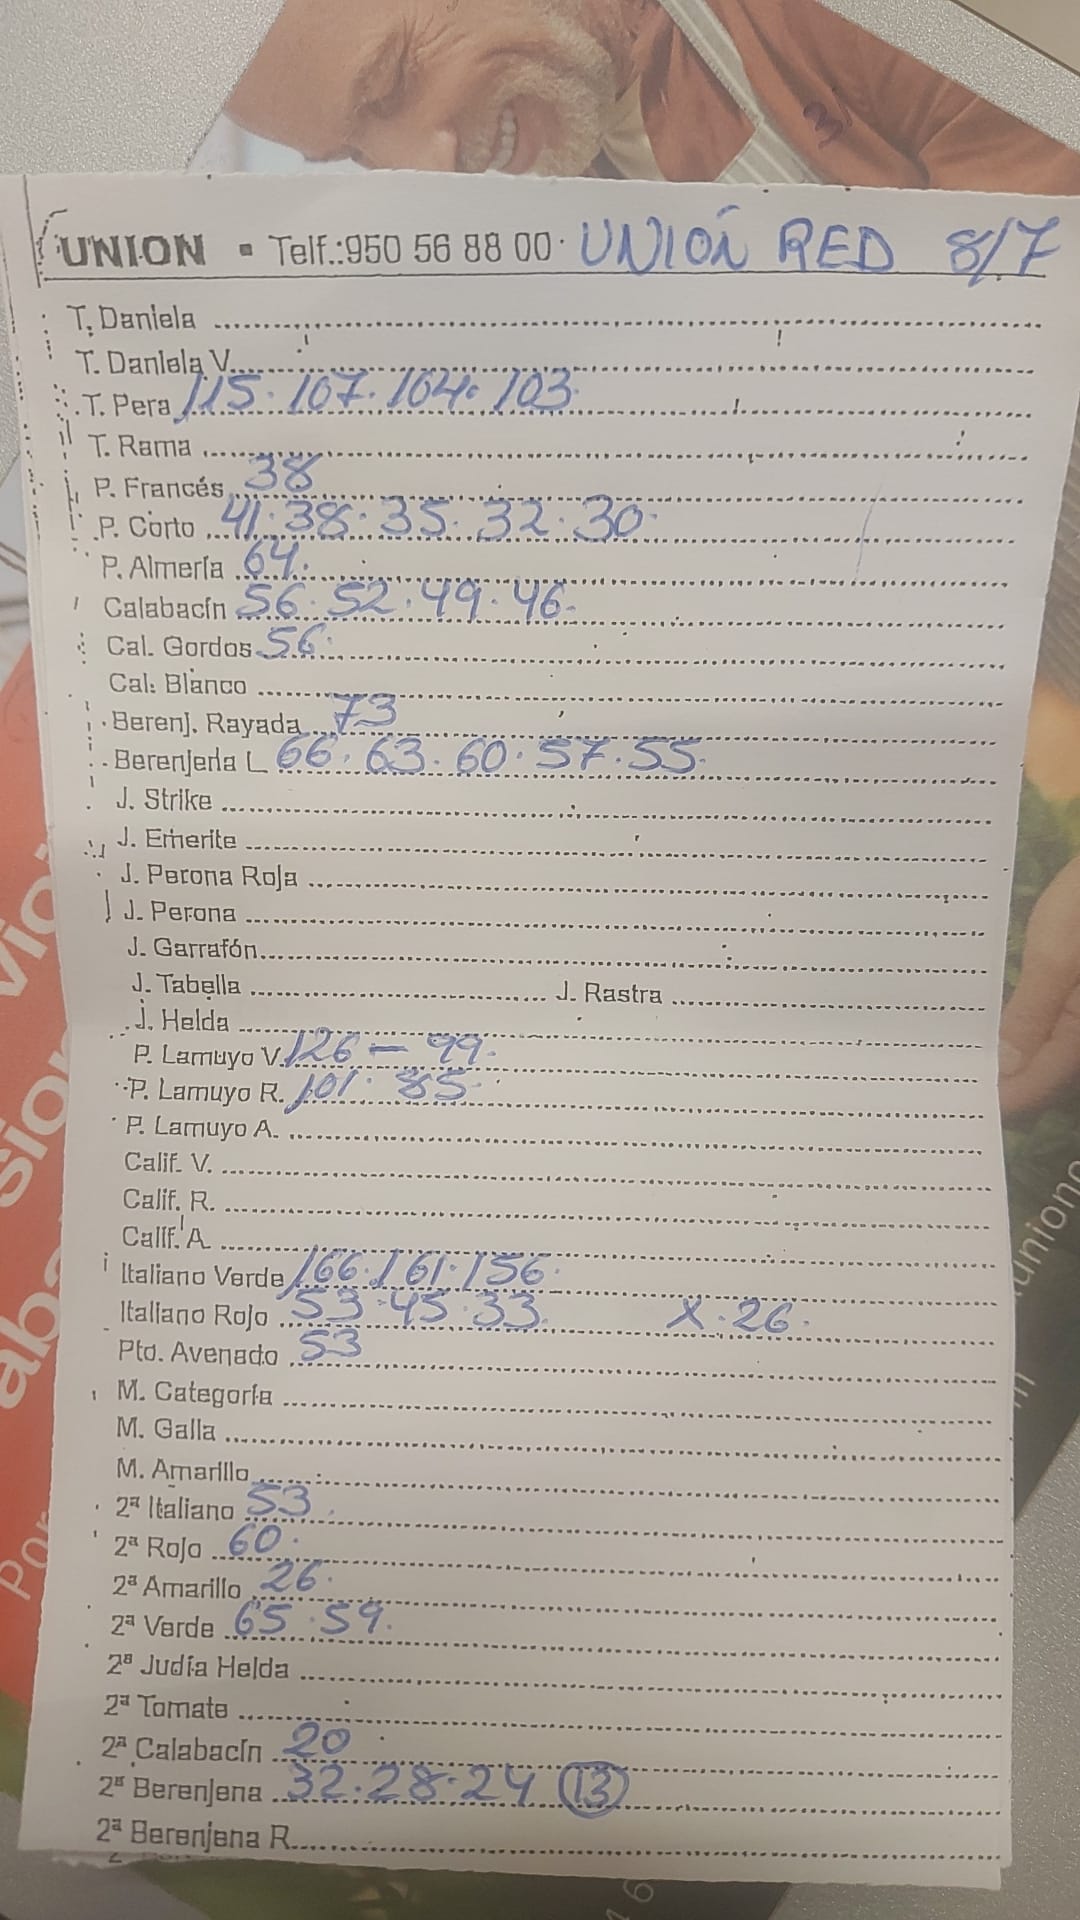 UNION ▪ Telf.:950 56 88 00 · UNIÓN RED 8/7
T. Daniela
T. Daniela V.
T. Pera 115 · 107 · 104 · 103
T. Rama
P. Francés 38
P. Corto 41 · 38 · 35 · 32 · 30
P. Almería 64
Calabacín 56 · 52 · 49 · 46
Cal. Gordos 56
Cal. Blanco
Berenj. Rayada 73
Berenjena L 66 · 63 · 60 · 57 · 55
J. Strike
J. Emerite
J. Perona Roja
J. Perona
J. Garrafón
J. Tabella J. Rastra
J. Helda
P. Lamuyo V. 126 - 99
P. Lamuyo R. 101 · 85
P. Lamuyo A.
Calif. V.
Calif. R.
Calif. A.
Italiano Verde 166 · 161 · 156
Italiano Rojo 53 · 45 · 33 X · 26
Pto. Avenado 53
M. Categoría
M. Galia
M. Amarillo
2ª Italiano 53
2ª Rojo 60
2ª Amarillo 26
2ª Verde 65 · 59
2ª Judía Helda
2ª Tomate
2ª Calabacín 20
2ª Berenjena 32 · 28 · 24 13
2ª Berenjena R.